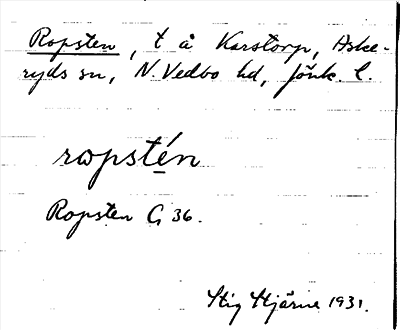 Ropsten, t å Karstorp, Aske-
ryds sn, N. Vedbo hd, Jönk. l.
ropstén
Ropsten G 36.
Stig Hjärne 1931.